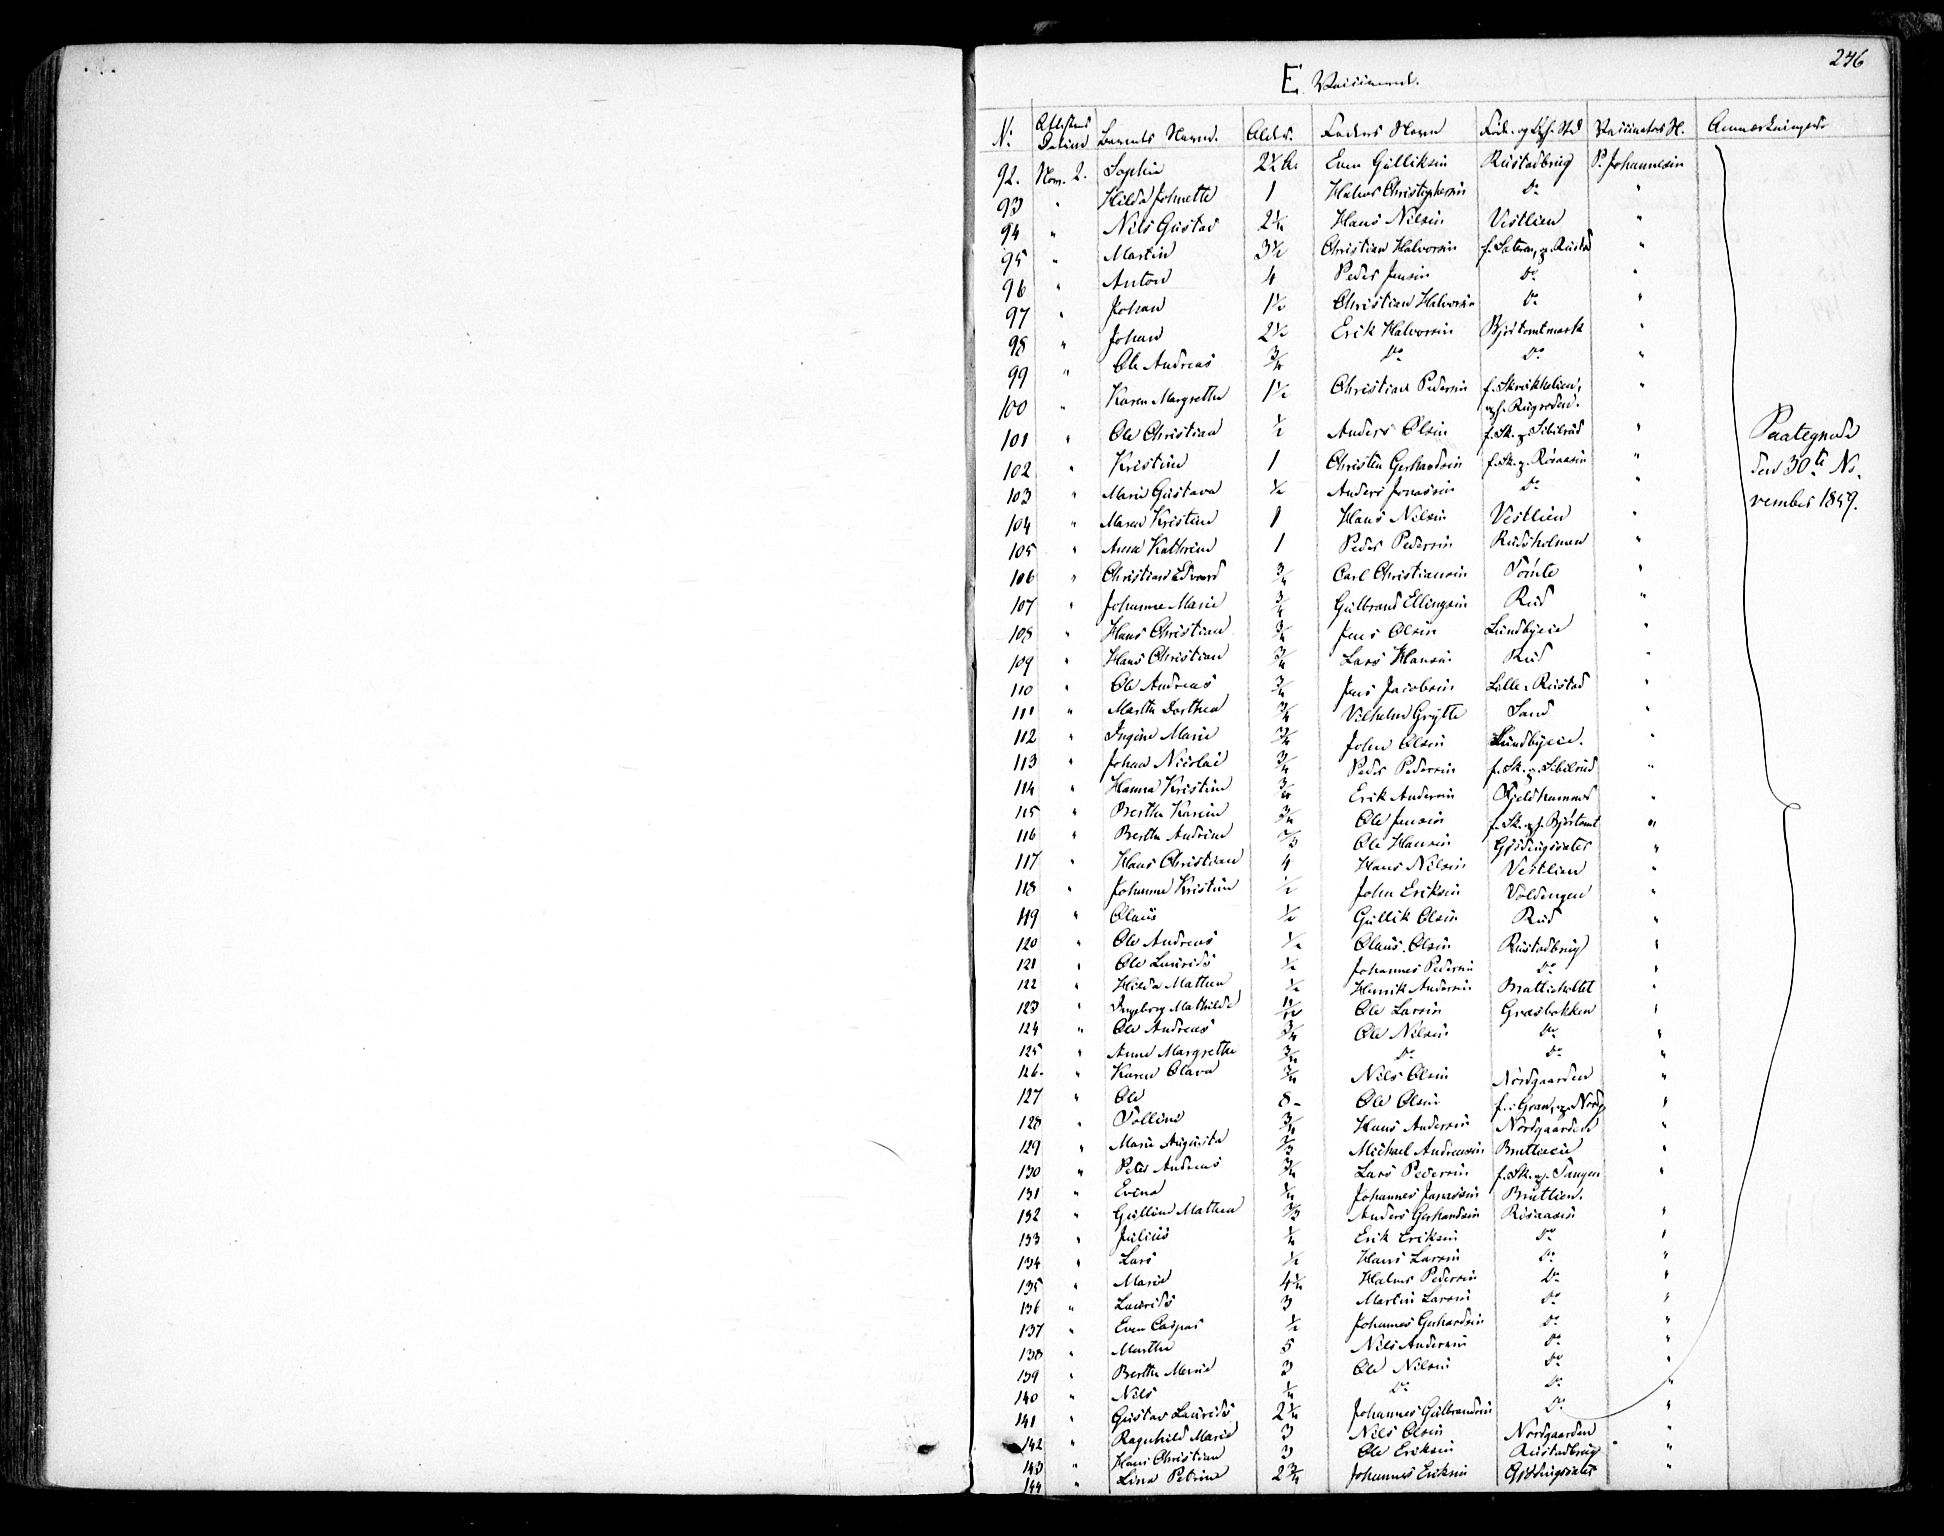 246
E. Vaccinerede.
N: Attestens Datum Barnets Navn. Alder. Faders Navn Føde- og Opholds Sted Vaccinators N. Anmærkninger
92. Nov. 2. Sophie Even Gulliksen Rustadbrug P. Johannesen
93 " Hilda Johnette 1 Halvor Christophersen Do "
94 " Nils Gustav 2 1/4 Hans Nilsen Vestlien "
95 " Martin 3 1/2 Christian Halvorsen "
96 " Anton 4 Peder Jensen Do "
97 " Johan 1 1/2 Christian Halvorsen Do "
98 " Johan 2 1/2 Erik Halvorsen "
99 " Ole Andreas 3/4 Do Do "
100 " Karen Margrethe 1 1/2 Christian Pedersen "
101 " Ole Christian 1/2 Anders Olsen f. Sk. og Sibilrud "
102 " Kristine 1 Christen Gerhardsen f. Sk. og Røsaasen "
103 " Marie Gustava Anders Jonassen Do "
104 " Maren Kristine 1 Hans Nilsen Vestlien "
105 " Anne Kathrine 1 Peder Pedersen Rudsholmen "
106 " Christian Edvard 3/4 Carl Christiansen Tomte "
107 " Johanne Marie 3/4 Gulbrand Ellingsen Rud "
108 " Hans Christian 3/4 Jens Olsen Lundbyeie "
109 " Hans Christian 3/4 Lars Hansen Rud "
110 " Ole Andreas 3/4 Jens Jacobsen Lille-Rustad "
111 " Marthe Dorthea 3/4 Vilhelm Grytte Sand "
112 " Ingine Marie 3/4 John Olsen Lundbyeie. "
113 " Johan Nicolai 3/4 Peder Pedersen f. Sk. og Sibilrud "
114 " Hanna Kristine 3/4 Erik Andersen Fjeldhammer "
115 " Berthe Karine 3/4 Ole Jensen "
116 " Berthe Andrine 2/3 Ole Hansen Gjødingsæter "
117 " Hans Christian 4 Hans Nilsen Vestlien "
118 " Johanne Kristine 1/2 John Eriksen Voldengen "
119 " Olaus Gullik Olsen Rud "
120 " Ole Andreas Olaus Olsen Rustadbrug "
121 " Ole Laurids Johannes Pedersen Do "
122 " Hilda Mathea Henrik Andersen "
123 " Ingeborg Mathilde Ole Larsen Græsbakken "
124 " Ole Andreas 3/4 Ole Nilsen Do "
125 " Anne Margrethe 3/4 Do Do "
126. " Karen Olava 3/4 Nils Olsen Nordgaarden "
127 " Ole 8 - Ole Olsen "
128 " Tolline 3/4 Hans Andersen Nordgaarden "
129 " Marie Augusta 2/3 Michael Andreasen "
130 " Peter Andreas 3/4 Lars Pedersen f. Sk. og Tangen "
131 " Evina Johannes Bratlien.
132 " Gulline Mathea 2/3 Anders Gerhardsen Røsaasen "
133 " Julius Erik Eriksen Do "
134 " Lars 1/2 Hans Larsen Do "
135 " Marie Halvor Pedersen Do "
136 " Laurids 3 Martin Larsen Do "
137 " Even Caspar 1/2 Johannes Gerhardsen Do "
138 " Marthe 5 Nils Andersen Do "
139 " Berthe Marie 3 Ole Nilsen Do "
140 " Nils Do Do "
141 " Gustav Laurids Johannes Gulbrandsen Do "
142 " Ragnhild Marie 3 Nils Olsen Nordgaarden "
143 " Hans Christian 3 Ole Eriksen Rustadbrug "
144 " Lina Petrine 2 3/4 Johannes Eriksen Gjødingsæter "
Paategnede
den 30te No-
vember 1859.